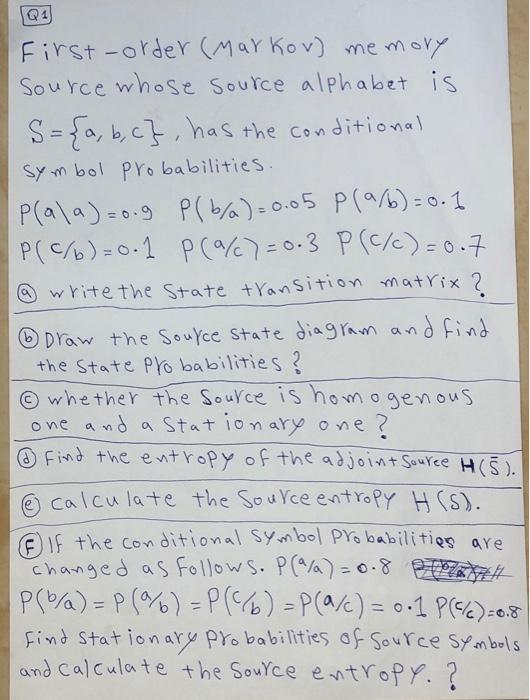 Q1
First-order (Markov) memory
Source whose source alphabet is
S={a, b, c}, has the conditional
symbol probabilities.
P(a\a)=0.9 P(b/a)=0.05 P(a/b)=0.1
P(c/b)=0.1 P(a/c)=0.3 P(c/c)=0.7
(a) write the state transition matrix?
(b) Draw the source state diagram and find
the state probabilities?
(c) whether the source is homogenous
one and a stationary one?
(d) Find the entropy of the adjoint source H(S̄).
(e) calculate the source entropy H(S).
(F) If the conditional symbol probabilities are
changed as follows. P(a/a)=0.8
P(b/a)=P(a/b)=P(c/b)=P(a/c)=0.1 P(c/c)=0.8
find stationary probabilities of source symbols
and calculate the source entropy.?